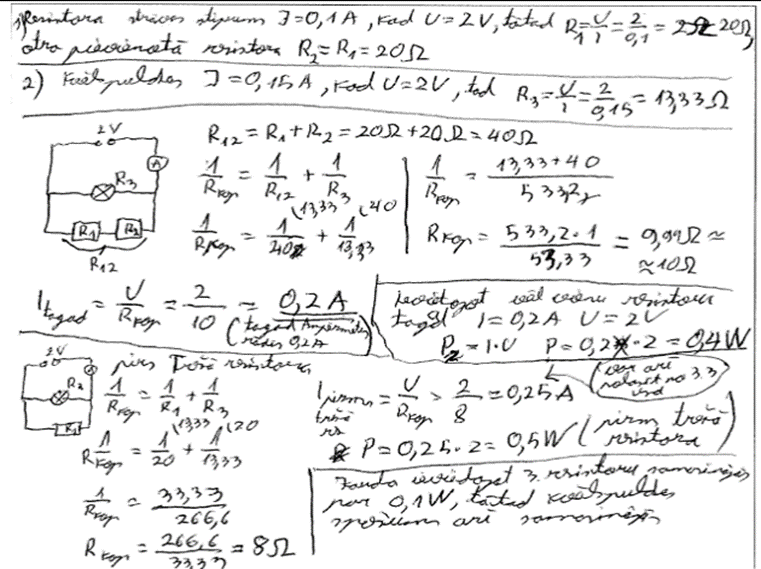 1) Rezistora strāvas stiprum I=0,1A, kad U=2V, tātad R₁=U/I=2/0,1=20Ω,
otra pievienotā rezistora R₂=R₁=20Ω
2) Kvēlspuldzes I=0,15A, kad U=2V, tad R₃=U/I=2/0,15=13,33Ω
R₁₂=R₁+R₂=20Ω+20Ω=40Ω
2V
A
R₃
R₁ R₂
R₁₂
1/Rkop = 1/R₁₂ + 1/R₃
1/Rkop = 1/40 + 1/13,33
(13,33 (40
1/Rkop = 13,33+40/533,2
Rkop = 533,2·1/53,33 = 9,99Ω ≈
≈10Ω
Itagad = U/Rkop = 2/10 = 0,2A
(tagad Ampermetrs
rādīs 0,2A)
Ieslēdzot vēl vienu rezistoru
tagad I=0,2A U=2V
P₂=I·U P=0,2·2=0,4W
(var arī
no 3.3
2V
R₃
R₁
pirms trešā rezistora
1/Rkop = 1/R₁ + 1/R₃
1/Rkop = 1/20 + 1/13,33
(13,33 (20
1/Rkop = 33,33/266,6
Rkop = 266,6/33,33 = 8Ω
Ipirms = U/Rkop = 2/8 = 0,25A
trešā
P=0,25·2=0,5W (pirms trešā
rezistora)
Jauda ieslēdzot 3. rezistoru samazinājās
par 0,1W, tātad kvēlspuldzes
spožums arī samazinājās